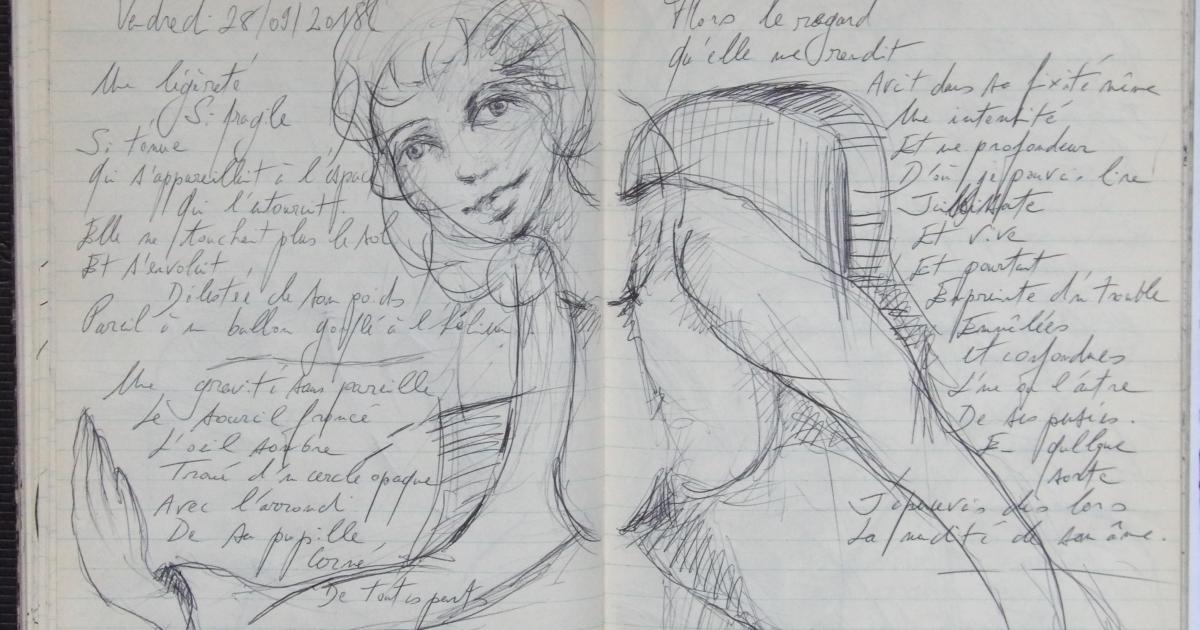 Vendredi 28/09/2018
Une légèreté
Si fragile
Si ténue
Qui s'appareillait à l'espace
Qui l'entourait.
Elle ne touchait plus le sol
Et s'envolait
Délestée de son poids
Pareil à un ballon gonflé à l'hélium
Une gravité sans pareille
Le sourcil froncé
L'oeil sombre
Troué d'un cercle opaque
Avec l'arrondi
De sa pupille
Cerné
De toutes parts
Alors le regard
qu'elle me rendit
Avait dans sa fixité même
Une intensité
Et une profondeur
D'où je pouvais lire
Jaillissante
Et vive
Et pourtant
Empreinte d'un trouble
Emmêlées
et confondues
L'une ou l'autre
De ses
En quelque
sorte
J'apercevais dès lors
La nudité de son âme.